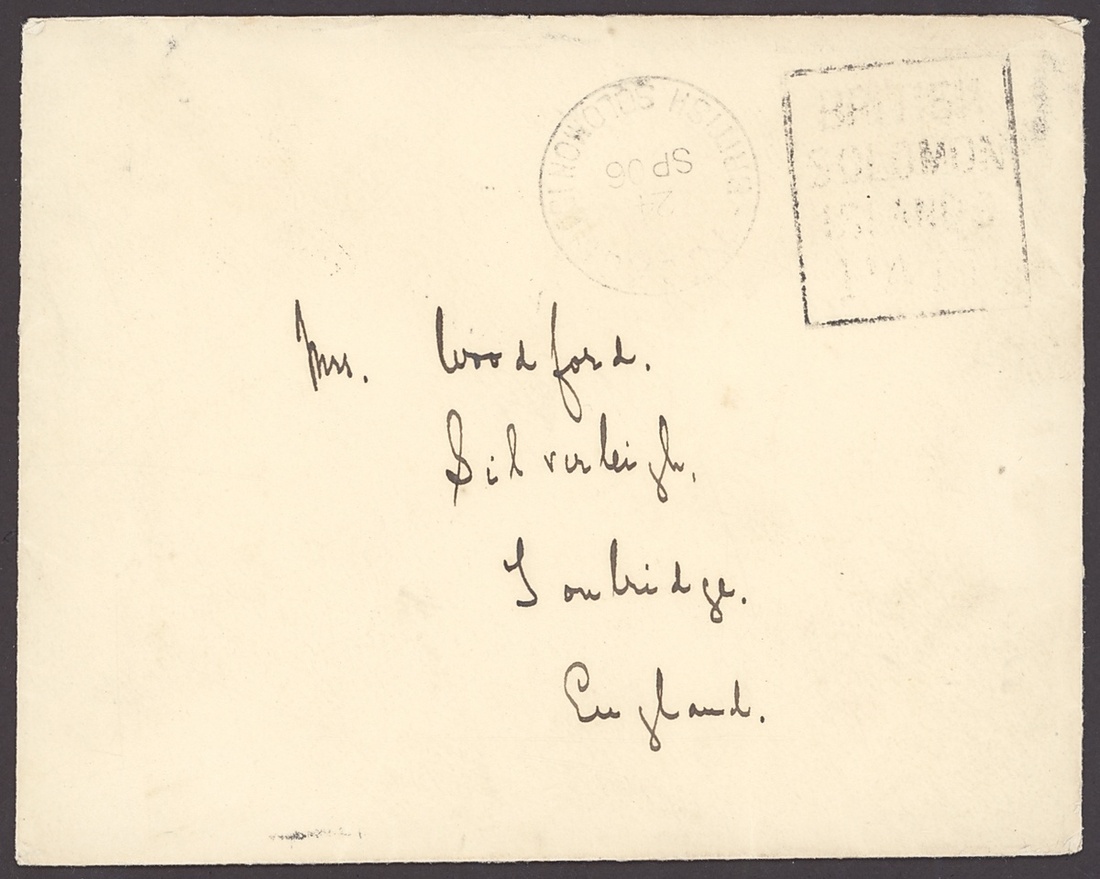 BRITISH SOLOMON
SP 06
24
BRITISH
SOLOMON
ISLANDS
PAID
Mrs. Woodford.
Silverleigh,
Tonbridge.
England.